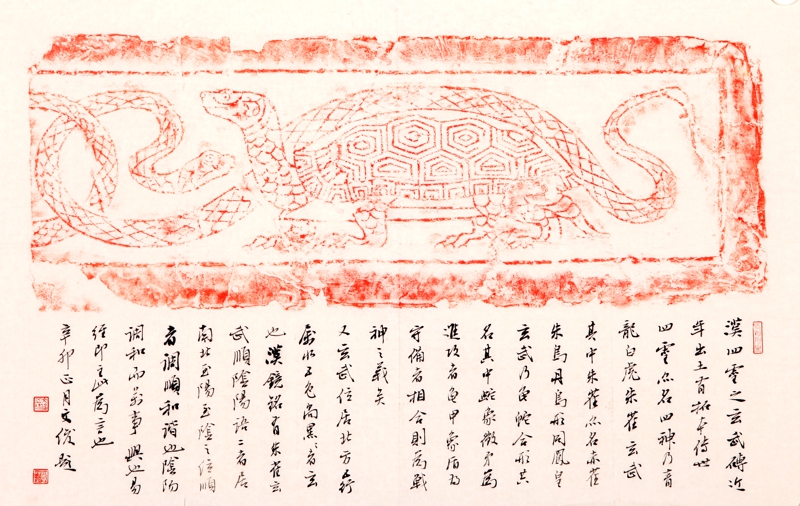 漢四靈之玄武磚近
年出土有拓本傳世
四靈亦名四神乃青
龍白虎朱雀玄武
其中朱雀亦名赤雀
朱鳥丹鳥形同鳳皇
玄武乃龜蛇合形共
名其中蛇象徵矛為
進攻者龜甲象盾為
守備者相合則為戰
神之義矣
又玄武位居北方五行
屬水五色尚黑〻者玄
也漢鏡銘有朱雀玄
武順陰陽語二者居
南北至陽至陰之位順
者調順和諧也陰陽
調和而萬事興也易
經即主此為言也
辛卯正月文俊題